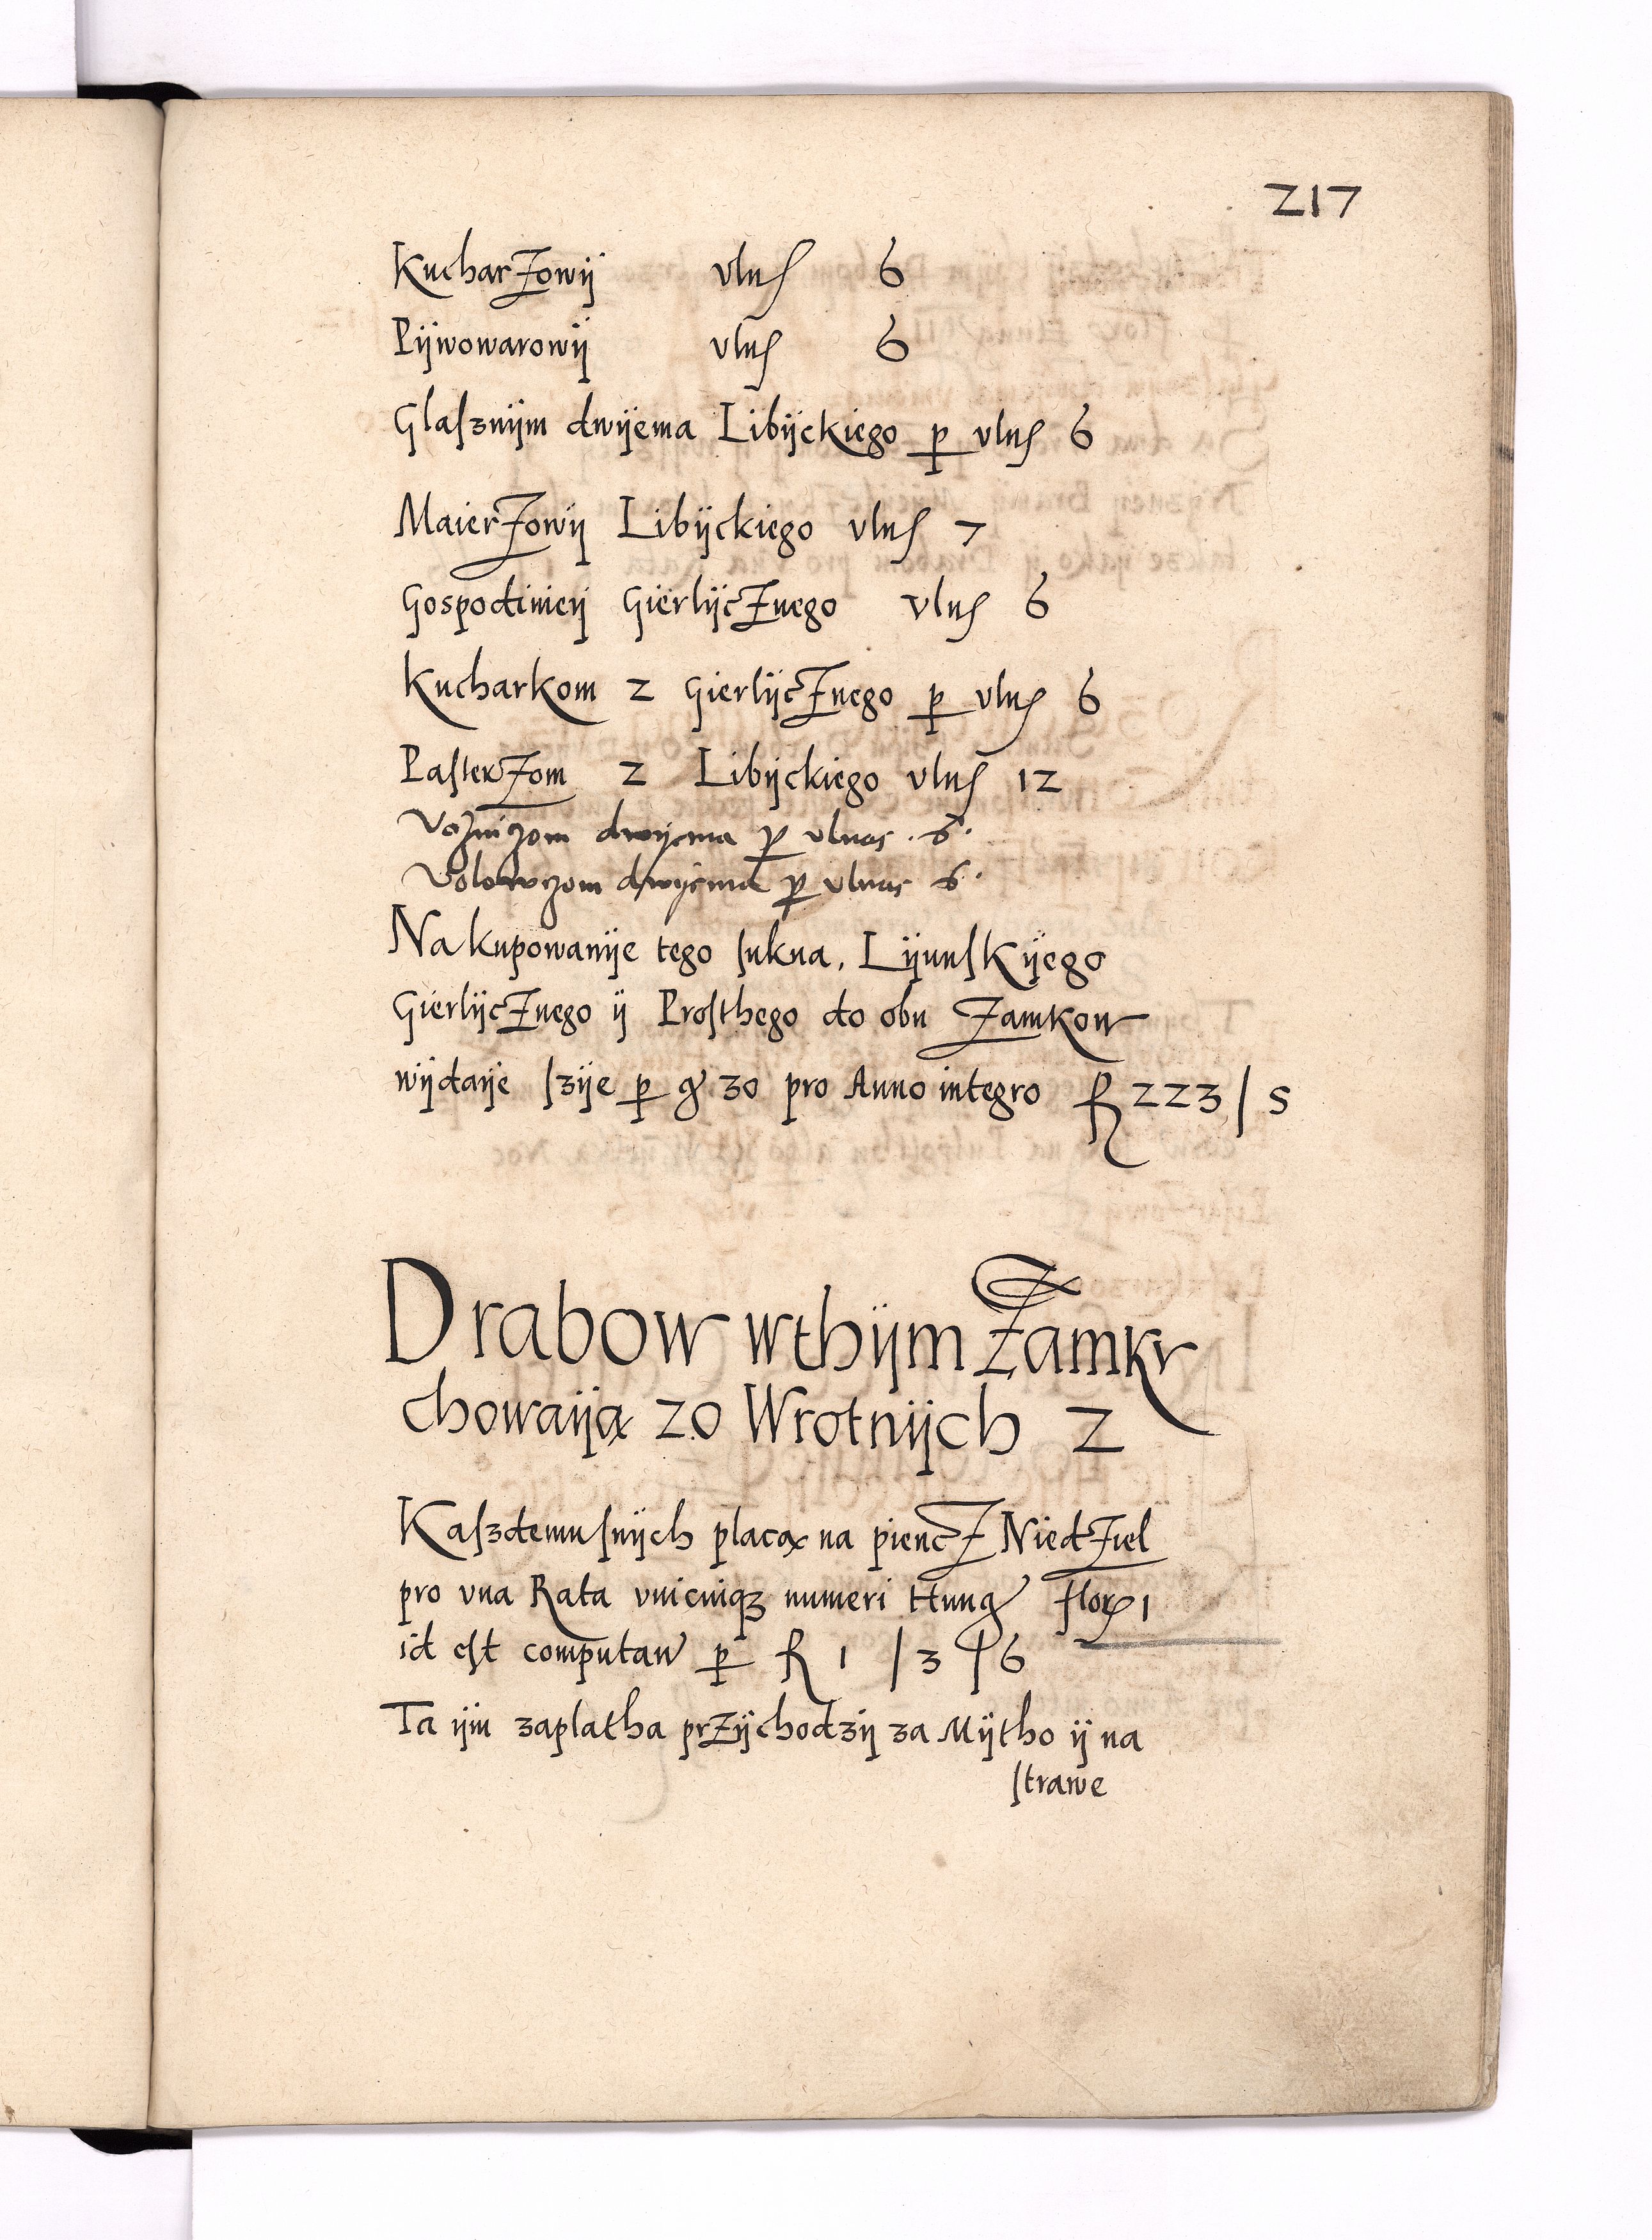 217
Kucharzowij ulnς 6
Pijwowarowij vlnς 6
Glasznijm dwijema Libijckiego ꝑ vlnς 6
Maierzowij Libijckiego vlnς 7
Gospodiniej Gierlijcznego vlnς 6
Kucharkom 2 Gierlijcznego ꝑ vlnς 6
Pasterzom 2 Libijckiego vlnς 12
Voznizom dwijema ꝑ vlnas .6.
Volowczom dwijema ꝑ vlnas 6.
Na kupowanije tego sukna, Lijunskijego
Gierlijcznego ij Prosthego do obu Zamkow
wijdaije szije ꝑ gͬ 30 pro Anno integro ƒ 223 / 5
Drabow wthijm Zamkv
chowaiją 20 Wrotnijch 2
Kaszdemu snijch placą na piencz Niedziel
pro vna Rata vnicuiqꝫ numeri Hung floꝝ 1
id est computaw ꝑ ƒ 1 / 3 / 6
Ta ijm zaplatha przijchodzij za Mijtho ij na
strawe